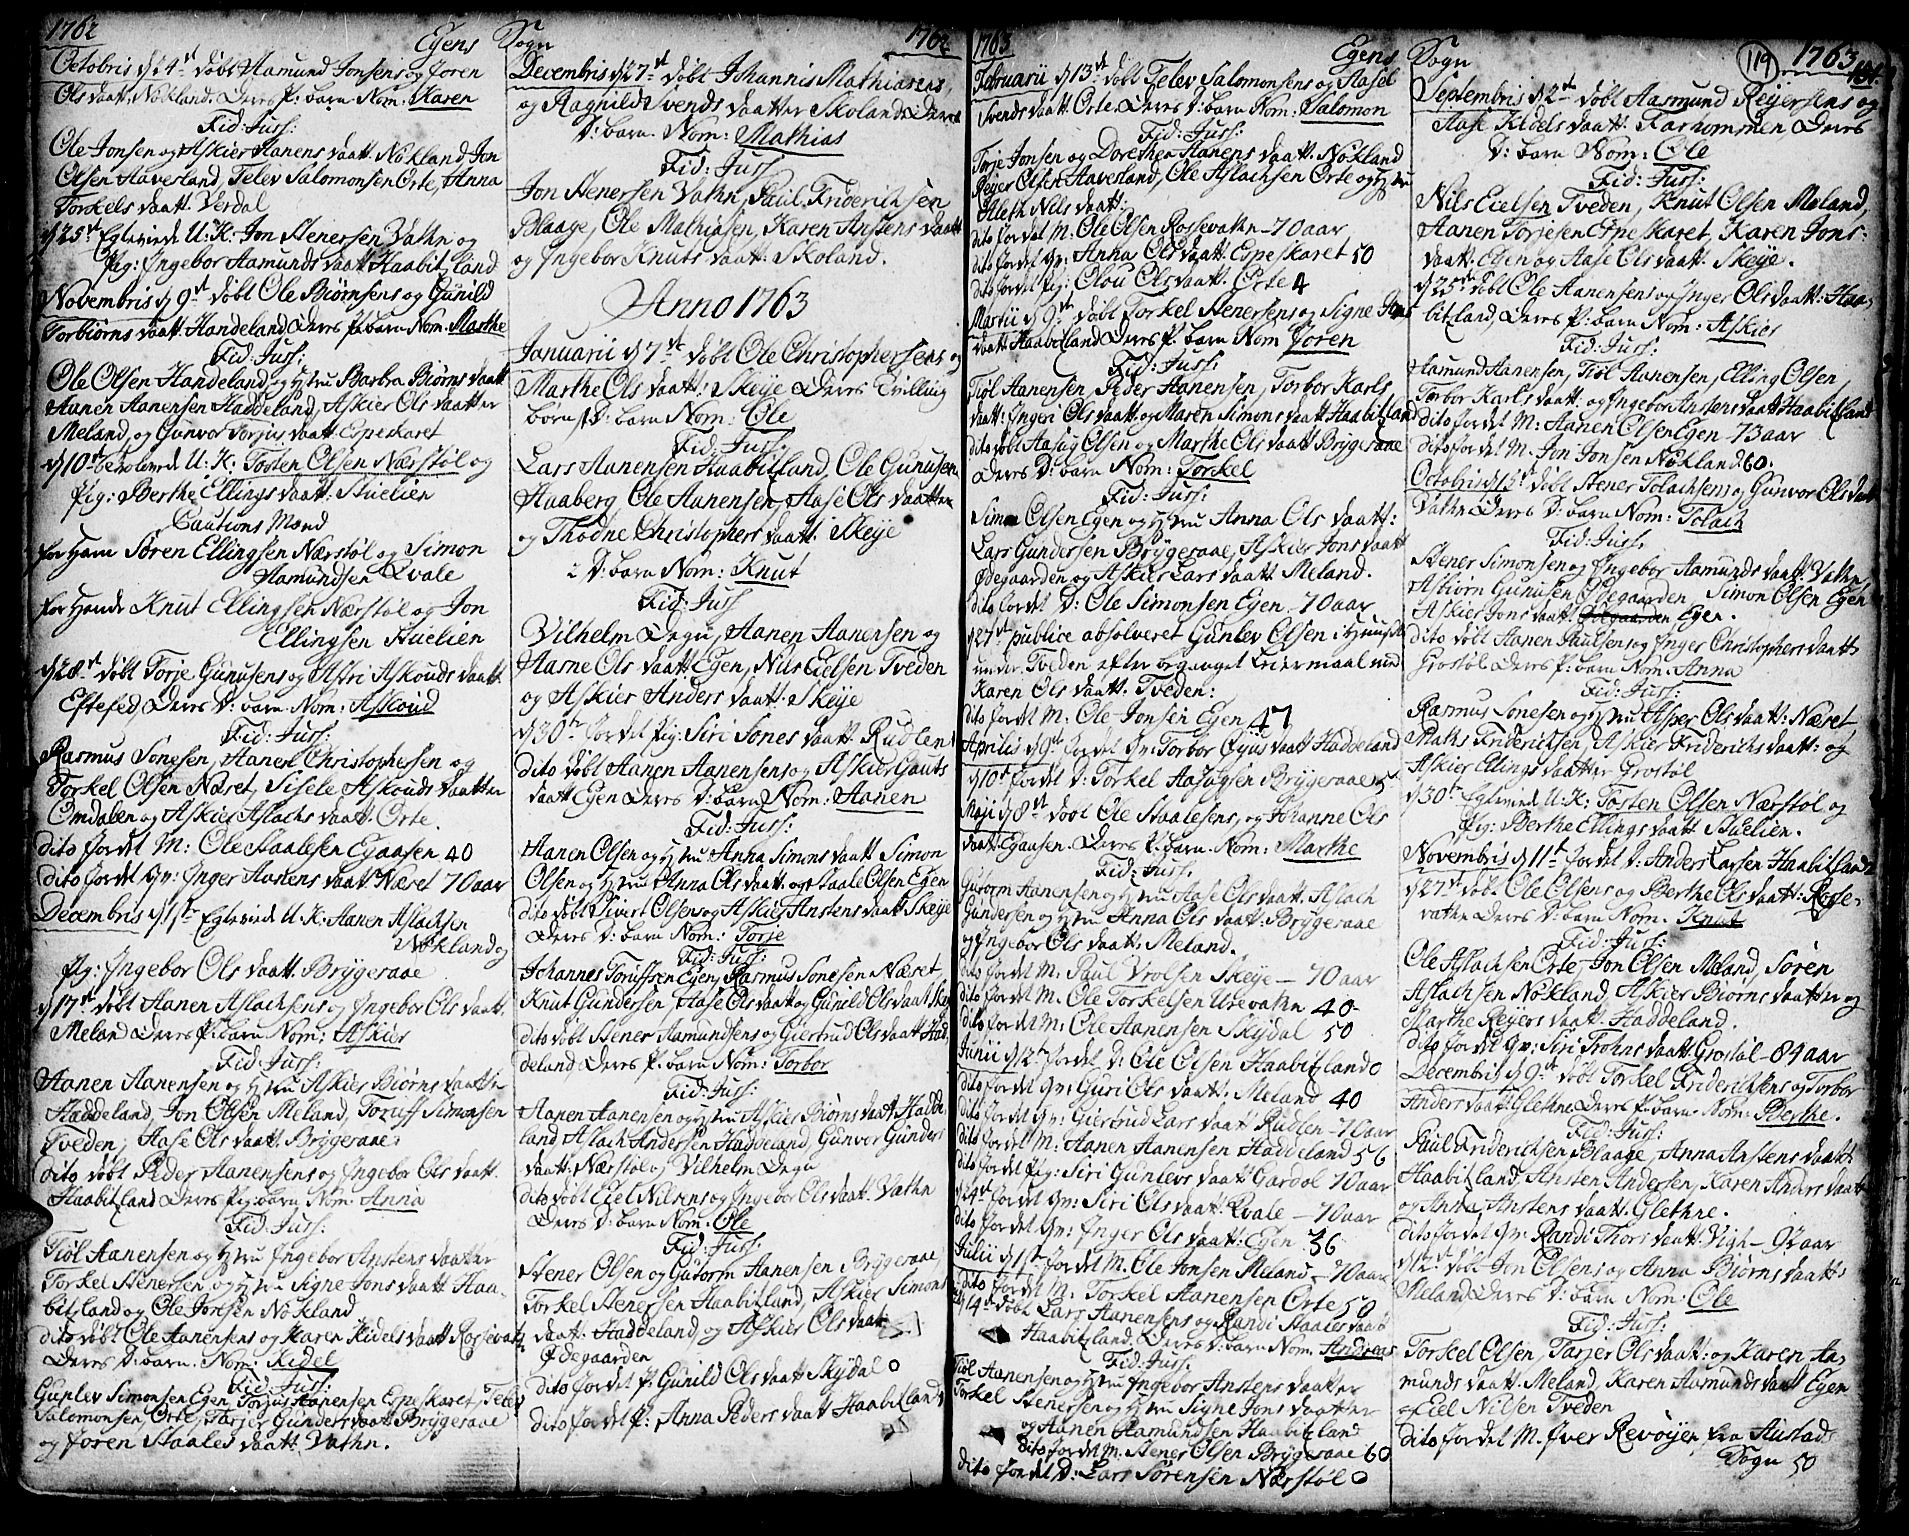 1762
Egens Sogn
1762
Octobris d 24st døbt Aamund Jonsens og Joren
Ols daatt: Nøkland. Deres P: barn Nom: Karen
Fid: Juss:
Ole Jonsen og Askier Aanens daatt: Nøkland, Jon
Olsen Aaversland, Telev Salomonsen Orte, Anna
Torkels daatt: Verdal
d 25st Egteviede U: K: Jon Henersen Vathn og
Pig: Ingebor Aamunds daatt Haabitzland
Novembris d 9st døbt Ole Biørnsens og Gunild
Torbiørns daatt: Handeland Deres P: barn Nom: Marthe
Fid: Juss:
Ole Olsen Handeland og Hustru Barbra Biørns daatt
Aanen Aanensen Haddeland, Askier Ols daatter
Meland, og Gunvor Torjus daatt: Espeskaret
d 10st trolovede U: K: Tosten Olsen Nærstøl og
Pig: Berthe Ellings daatt: Stuelien
Cautions Mænd
for ham Søren Ellingsen Nærstøl og Simon
Aamundsen Qvale
for hende Knut Ellingsen Nærstøl og Jon
Ellingsen Stuelien
d 28st døbt Torje Gunusens og Astri Askouds daatt:
Eftefed, Deres D: barn Nom: Askoud
Fid: Juss:
Rasmus Sonesen, Aanen Christophersen og
Torkel Olsen Næset, Sisele Askouds daatter
Omdalen og Askier Aslachs daatt: Orte
dito jordet M: Ole Staalesen Egaasen 40
dito jordet Qv: Inger Aanens daatt Næset 70 aar
Decembris d 1st Egteviede U: K: Aanen Aslachsen
Nøkland og
Pig: Ingebor Ols daatt: Brygeraae
d 17st døbt Aanen Aslachsens og Ingebor Ols daatt.
Meland Deres P: barn Nom: Askier
Fid: Juss:
Aanen Aanensen og Hustru Askier Biørns daatter
Haddeland, Jon Olsen Meland, Toruff Simonsen
Tveden, Aase Ols daatt: Brygeraae
dito døbt Peder Aanensens og Ingebor Ols daatt.
Haabitzland Deres Pig: barn Nom: Anna
Fid: Juss:
Tiøl Aanensen og Hustru Ingebor Anstens daatter
Torkel Henersen og Hustru Signe Jons daatt Haa-
bitzland og Ole Jonsen Nøkland
dito døbt Ole Aanensens og Karen Kidels daatt Rosevatn
Deres D: barn Nom: Kidel
Fid: Juss:
Gunlev Simonsen Egen Torjus Aanensen Espeskaret, Telev
Salomonsen Orte, Tarjer Gunders daatt Brygeraae
og Joren Staales daatt: Vathn.
Decembris d 27st døbt Johannis Mathiasens
og Ragnild Svends daatter Skoland Deres
D: barn Nom: Mathias
Fid: Juss
Jon Henersen Vathn, Paul Friderichsen
Blaage, Ole Mathiasen, Karen Anstens daatt
og Ingebor Knuts daatt: Skoland.
Anno 1763
Januarii d 7st døbt Ole Christophersens og
Marthe Ols daatt: Skeije Deres Tvilling
børn 1 D: barn Nom: Ole
Fid: Juss:
Lars Aanensen Haabitzland, Ole Gunusen
Haaberg, Ole Aanensen, Aase Ols daatter
og Thodne Christophers daatt: Skeije
2 D: barn Nom: Knut
Fid: Juss
Vilhelm Degn, Aanen Aanensen og
Aarne Ols daatt Egen, Nils Eielsen Tveden
og Askier Anders daatt: Skeije
d 30te jordet Pig: Siri Sones daatt Rudlen
dito døbt Aanen Aanensens og Askier Gauts
daatt Egen Deres D: barn Nom: Aanen
Fid: Juss:
Aanen Olsen og Hustru Anna Simons daatt Simon
Olsen og Hustru Anna Ols daatt. og Staale Olsen Egen
dito døbt Sivert Olsens og Askier Anstens daatt Skeije
Deres D: barn Nom: Torje
Fid: Juss:
Johannes Toruffsen Egen, Rasmus Sonesen Næset
Knut Gundersen, Aase Ols daatt og Gunild Ols daatt Skeij
dito døbt Stener Aamundsens og Giertrud Ols daatt Had
deland, Deres P: barn Nom: Torbor
Fid: Juss:
Aanen Aanensen og Hustru Askier Biørns daatt Hadde-
land Aslach Andersen Haddeland, Gunvor Gunders
daatt: Nærstøl og Vilhelm Degn
dito døbt Eiel Nilsens og Ingebor Ols daatt: Vathn
Deres D: barn Nom: Ole
Fid: Juss.
Stener Olsen og Gutorm Aanensen Brygeraae
Torkel Henersen Haabitzland, Askier Simons
daatt: Haddeland, og Askier Ols daatt
Ødegaarden
dito jordet P: Gunild Ols daatt Skydal 0
dito jordet P: Anna Peders daatt Haabitzland
1763
Egens Sogn
119 1763
Februarii d 13st døbt Telev Salomonsens og Aasel
Svends daatt Orte Deres D: barn Nom: Salomon
Fid: Juss:
Torje Jonsen og Dorethea Aanens daatt: Nøkland
Reyer Olsen Aaversland, Ole Aslachsen Orte og Hustru
Aleth Nils daatt:
dito jordet M: Ole Olsen Rossevathn - 70 aar
dito jordet Qv: Anna Ols daatt: Espeskaret 50
dito jordet Pig: Olou Ols daatt: Orte 4
Martii d 9st døbt Torkel Henersens og Signe Jons
daatt Haabitzland Deres P: barn Nom Joren
Fid: Juss:
Tiøl Aanensen, Peder Aanensen, Torbor Karls
daatt: Ingeri Ols daatt og Maren Simons daatt Haabitzland
dito døbt Aasug Olsen og Marthe Ols daatt Brygeraae
Deres D: barn Nom: Torkel
Fid: Juss:
Simon Olsen Egen og Hustru Anna Ols daatt:
Lars Gundersen Brygeraae, Askier Jons daatt
Ødegaarden og Askier Lars daatt Meland.
dito jordet D: Ole Simonsen Egen - 70 aar
d 27st publice absolveret Gunlev Olsen i
under Tveden efter begangel Leiermaal med
Karen Ols daatt. Tveden:
dito jordet M. Ole Jonsen Egen 47
Aprilis d 9st jordet Qv: Torbor Eijus daatt Haddeland
d 10st jordet D: Torkel Aasugsen Brygeraae
Maji d 8st døbt Ole Staalesens, og Johanne Ols
daatt Egaasen. Deres P: barn Nom: Marthe
Fid: Juss.
Gutorm Aanensen og Hustru Aase Ols daatt, Aslach
Gundersen og Hustru Anna Ols daatt: Brygeraae
og Ingebor Ols daatt: Meland.
dito jordet M. Paul Vrolsen Skeije - 70 aar
dito jordet M. Ole Torkelsen Utevathn 40-
dito jordet M: Ole Aanensen Skydal 50
Junii d 12st jordet D: Ole Olsen Haabitzland 0
dito jordet Qv: Guri Ols daatt: Meland 40
dito jordet Qv: Giertrud Lars daatt Rudlen - 70 aar
dito jordet M. Aanen Aanensen Haddeland 56
dito jordet Pig: Siri Gunlevs daatt Gardøl 70 aar
d 24st jordet Qv: Siri Ols daatt: Qvale - 70 aar
dito jordet Qv: Inger Ols daatt: Egen 36
Julii d 1st jordet M. Ole Jonsen Meland - 70 aar
dito jordet M. Torkel Aanensen Orte 50
d 14st døbt Lars Aanensens og Randi Staales daatt
Haabitzland. Deres D: barn Nom: Andreas
Fid: Juss.
Tiøl Aanensen og Hustru Ingebor Anstens daatter
Torkel Stenersen og Hustru Signe Jons daatter
og Aanen Aamundsen Haabitzland
dito jordet M. Stener Olsen Brygeraae 60
dito jordet D: Lars Sørensen Nærstøl 0
Septembris d 2st døbt Aasmund Reijersens og
Aase Kidels daatt: Karhommen Deres
D: barn Nom: Ole
Fid: Juss:
Nils Eielsen Tveden, Knut Olsen Meland,
Aanen Torjesen Espeskaret, Karen Jons:
daatt: Egen og Aase Ols daatt: Skeije.
d 25st døbt Ole Aanensens og Inger Ols daatt: Haa-
bitzland, Deres P: barn Nom: Askier
Fid: Juss:
Aamund Aanensen, Tiøl Aanensen, Elling Olsen,
Torbor Karls daatt: og Ingebor Anstens daatt Haabitzland
dito jordet M: Aanen Olsen Egen 73 aar
dito jordet M. Jon Jonsen Nøkland 60.
Octobris d døbt Stener Tolachsens og Gunvor Ols daatt
Vathn Deres D: barn Nom: Tolach
Fid: Juss.
Stener Simonsen og Ingebor Aamunds daatt: Vathn
Asbiørn Gunusen Ødegaarden Simon Olsen Egen
Askier Jons daatt: Ødegaarden Egen.
dito døbt Aanen Paulsens og Inger Christophers daatt
Grostøl Deres P: barn Nom: Anna
Fid: Juss:
Rasmus Sonesen og Hustru Asper Ols daatt: Næset
Maths Friderichsen, Askier Friderichs daatt: og
Askier Ellings daatter Grostøl
d 30te Egteviede U: K: Tosten Olsen Nærstøl og
Pig: Berthe Ellings daatt Stuelien.
Novembris d 11st jordet D: Anders Larsen Haabitzland
d 27st døbt Ole Olsens og Berthe Ols daatt: Rosse-
vathn Deres D: barn Nom. Knut
Fid: Juss:
Ole Aslachsen Orte, Jon Olsen Meland, Søren
Aslachsen Nøkland, Askier Biørns daatter og
Marthe Reijers daatt: Haddeland.
dito jordet Qv: Siri Trohns daatt: Grostøl - 84 aar
Decembris d 9st døbt Torkel Friderichsens og Torbor
Anders daatt: Glethne Deres P: barn Nom: Berthe.
Fid: Juss:
Paul Friderichsen Blaage, Anna Anstens daatt
Haabitzland, Ansten Andersen, Karen Anders daatt
og Anna Anstens daatt: Glethne.
dito jordet Qv: Randi Thors daatt: Vigh - 92 aar
d 12st døbt Jon Olsens og Anna Biørns daatt:
Meland Deres D: barn Nom: Ole
Fid: Juss:
Torkel Olsen, Tarjer Ols daatt: og Karen Aa-
munds daatt: Meland, Karen Aamunds daatt Egen
og Eiel Nilsen Tveden
dito jordet M. Iver Revøijen fra Austads
Sogn 50